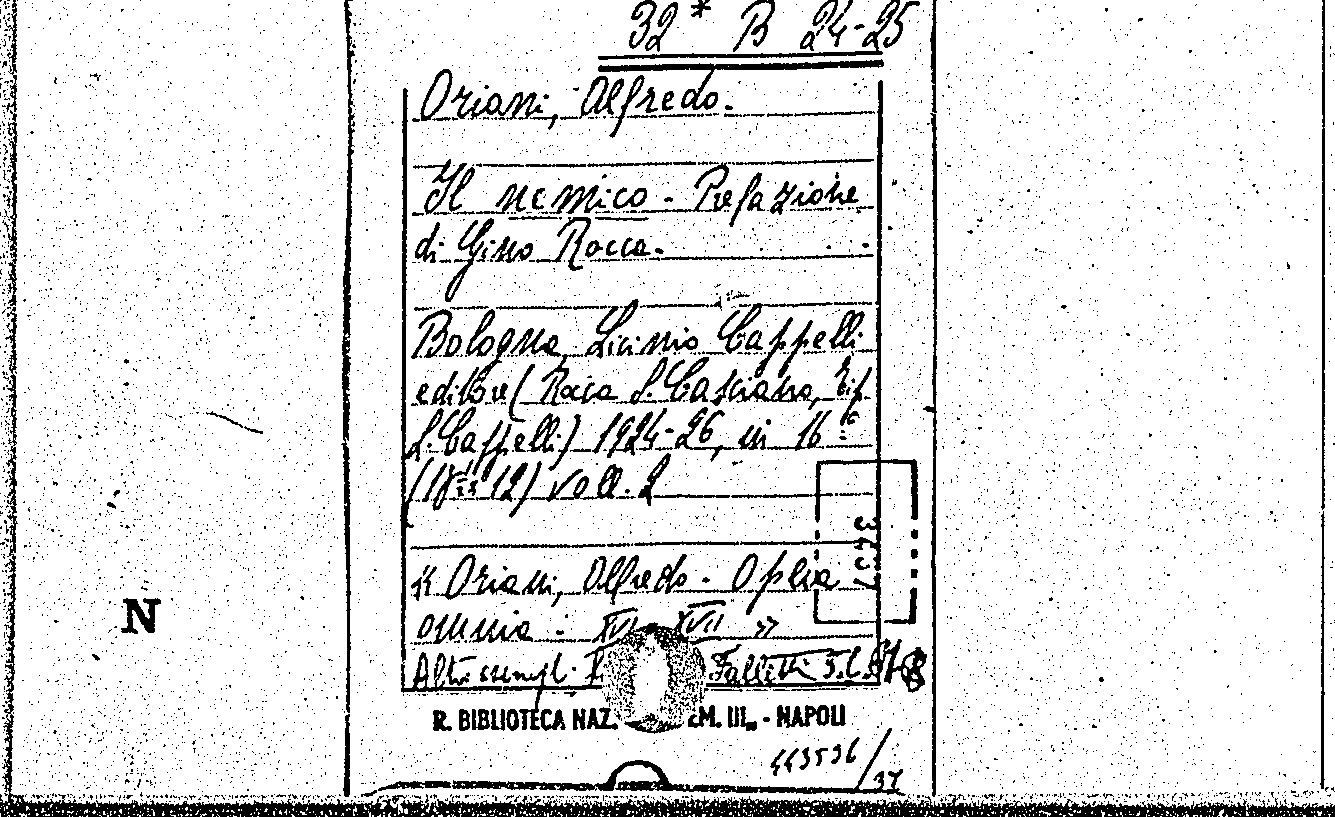 32* B 24-25
Oriani, Alfredo.
Il nemico - Prefazione
di Gino Rocca.
Bologna, Licinio Cappelli
editore (Rocca S. Casciano, Tip.
L. Cappelli) 1924-26, in 16°
voll. 2
« Oriani, Alfredo - Opera
omnia - XVI - XVII »
Altri esempl. Falletti
R. BIBLIOTECA NAZ. M. III„ - NAPOLI
443536/37
N